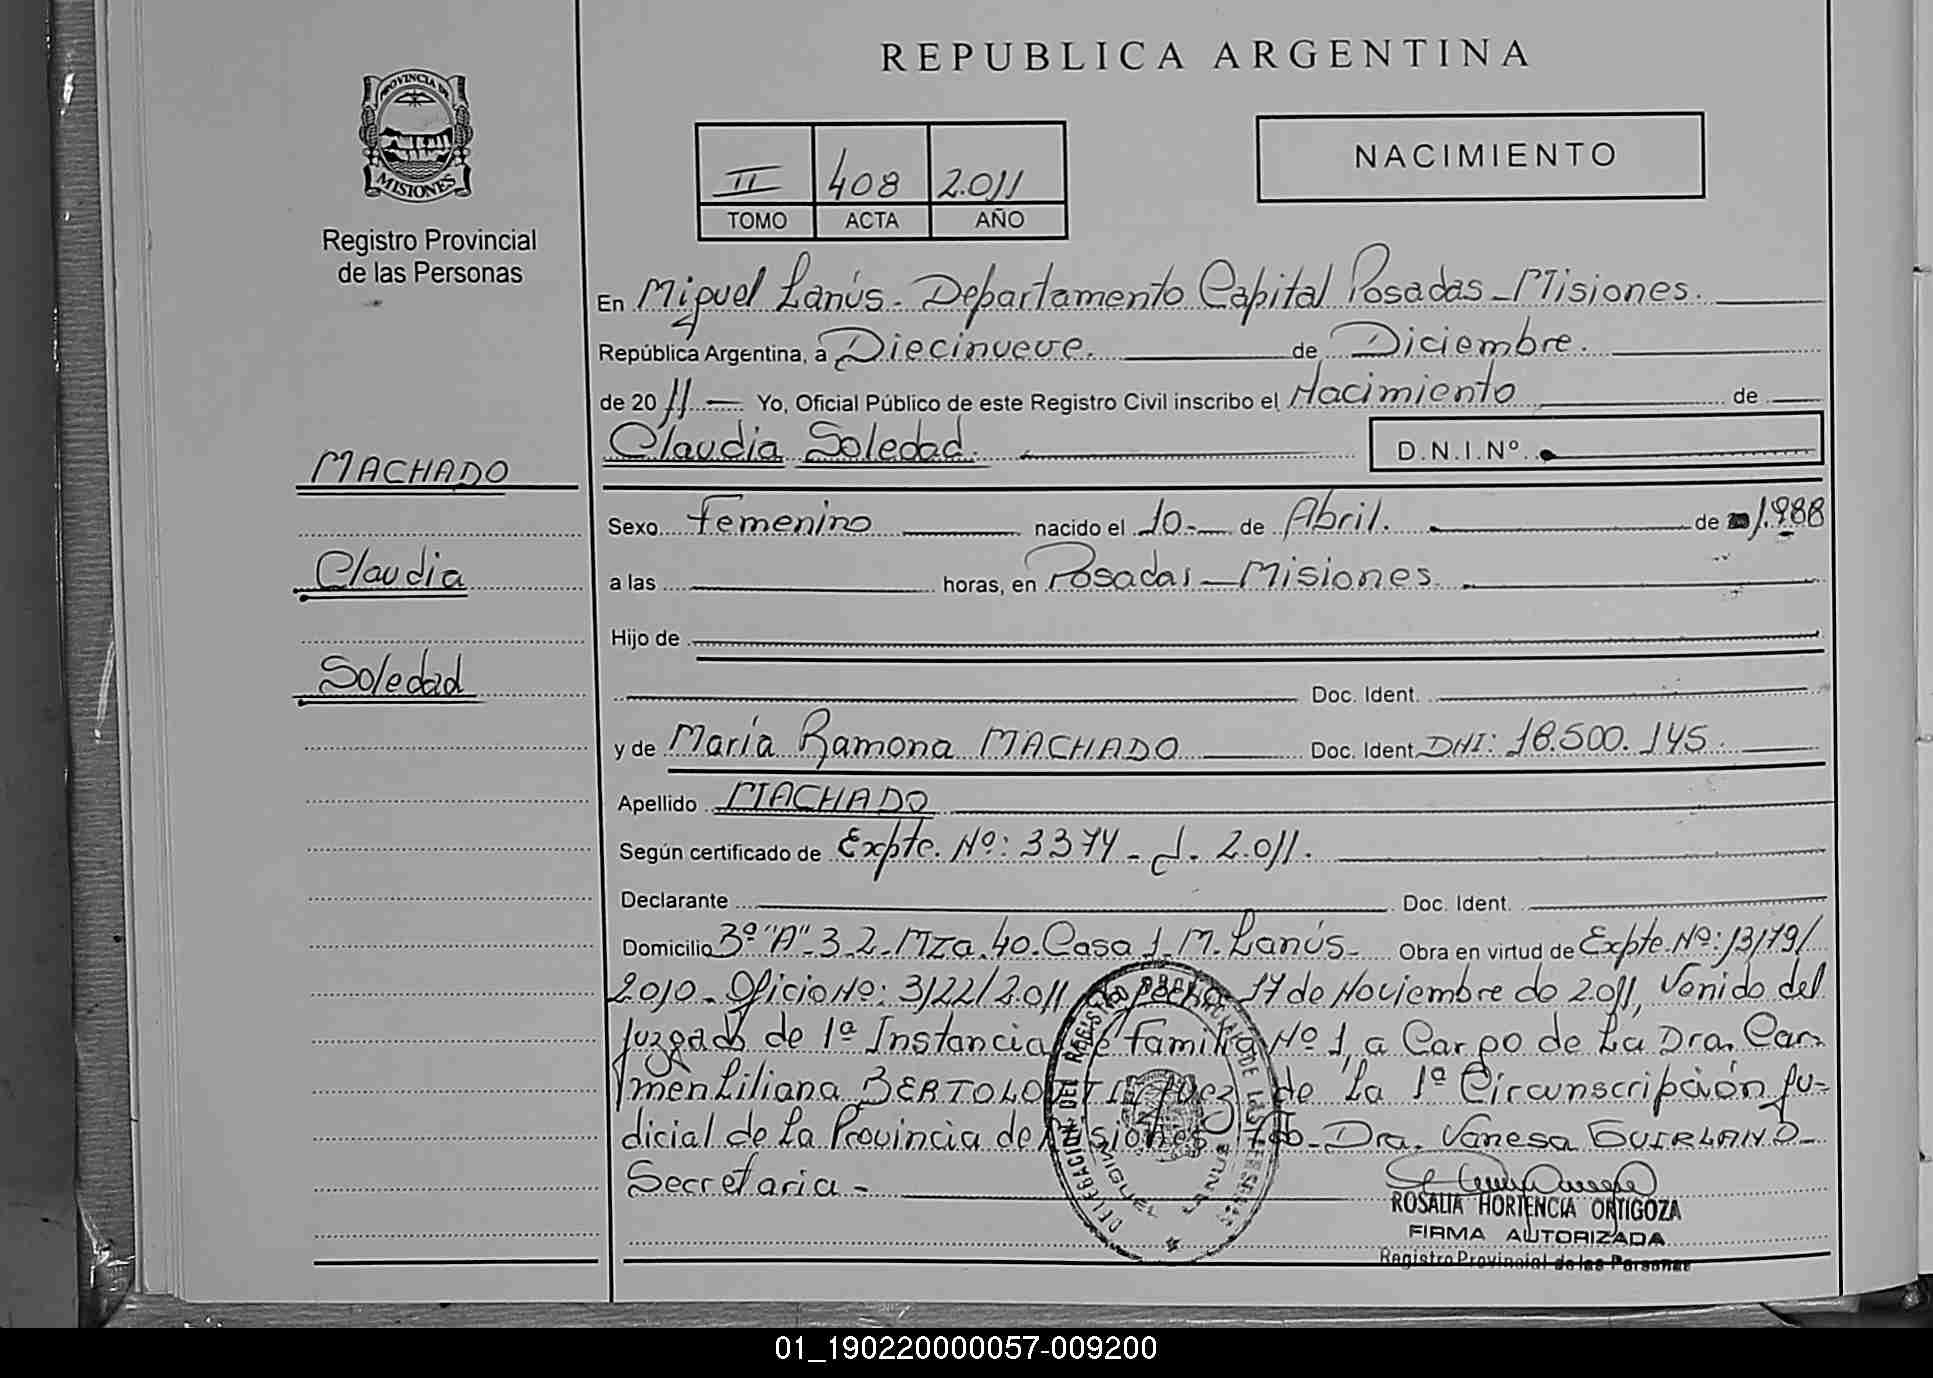 REPUBLICA ARGENTINA
PROVINCIA DE
MISIONES
Registro Provincial
de las Personas
II 408 2.011
TOMO ACTA AÑO
NACIMIENTO
En Miguel Lanús. Departamento Capital Posadas - Misiones.
República Argentina, a Diecinueve. de Diciembre.
de 2011 Yo, Oficial Público de este Registro Civil inscribo el Nacimiento de
Claudia Soledad. D.N.I.Nº
MACHADO
Claudia
Soledad
Sexo Femenino nacido el 10 de Abril. de 1.988
a las horas, en Posadas - Misiones
Hijo de
Doc. Ident.
y de María Ramona MACHADO Doc. Ident. DNI: 18.500.145
Apellido MACHADO
Según certificado de Expte. Nº: 3374 - J. 2.011.
Declarante Doc. Ident.
Domicilio 3º "A" - 3.2. Mza. 40. Casa 1. M. Lanús - Obra en virtud de Expte. Nº: 13179/
2010 - Oficio Nº: 3122/2.011 fecha 17 de Noviembre de 2.011, Venido del
Juzgado de 1ª Instancia de Familia Nº 1, a Cargo de La Dra. Car-
men Liliana BERTOLOTTI Juez de La 1ª Circunscripción Ju-
dicial de La Provincia de Misiones - Fdo - Dra. Vanesa GUIRLAND -
Secretaria -
DELEGACION DEL REGISTRO PROVINCIAL DE LAS PERSONAS
MIGUEL LANUS
ROSALIA HORTENCIA ORTIGOZA
FIRMA AUTORIZADA
Registro Provincial de las Personas
01_190220000057-009200